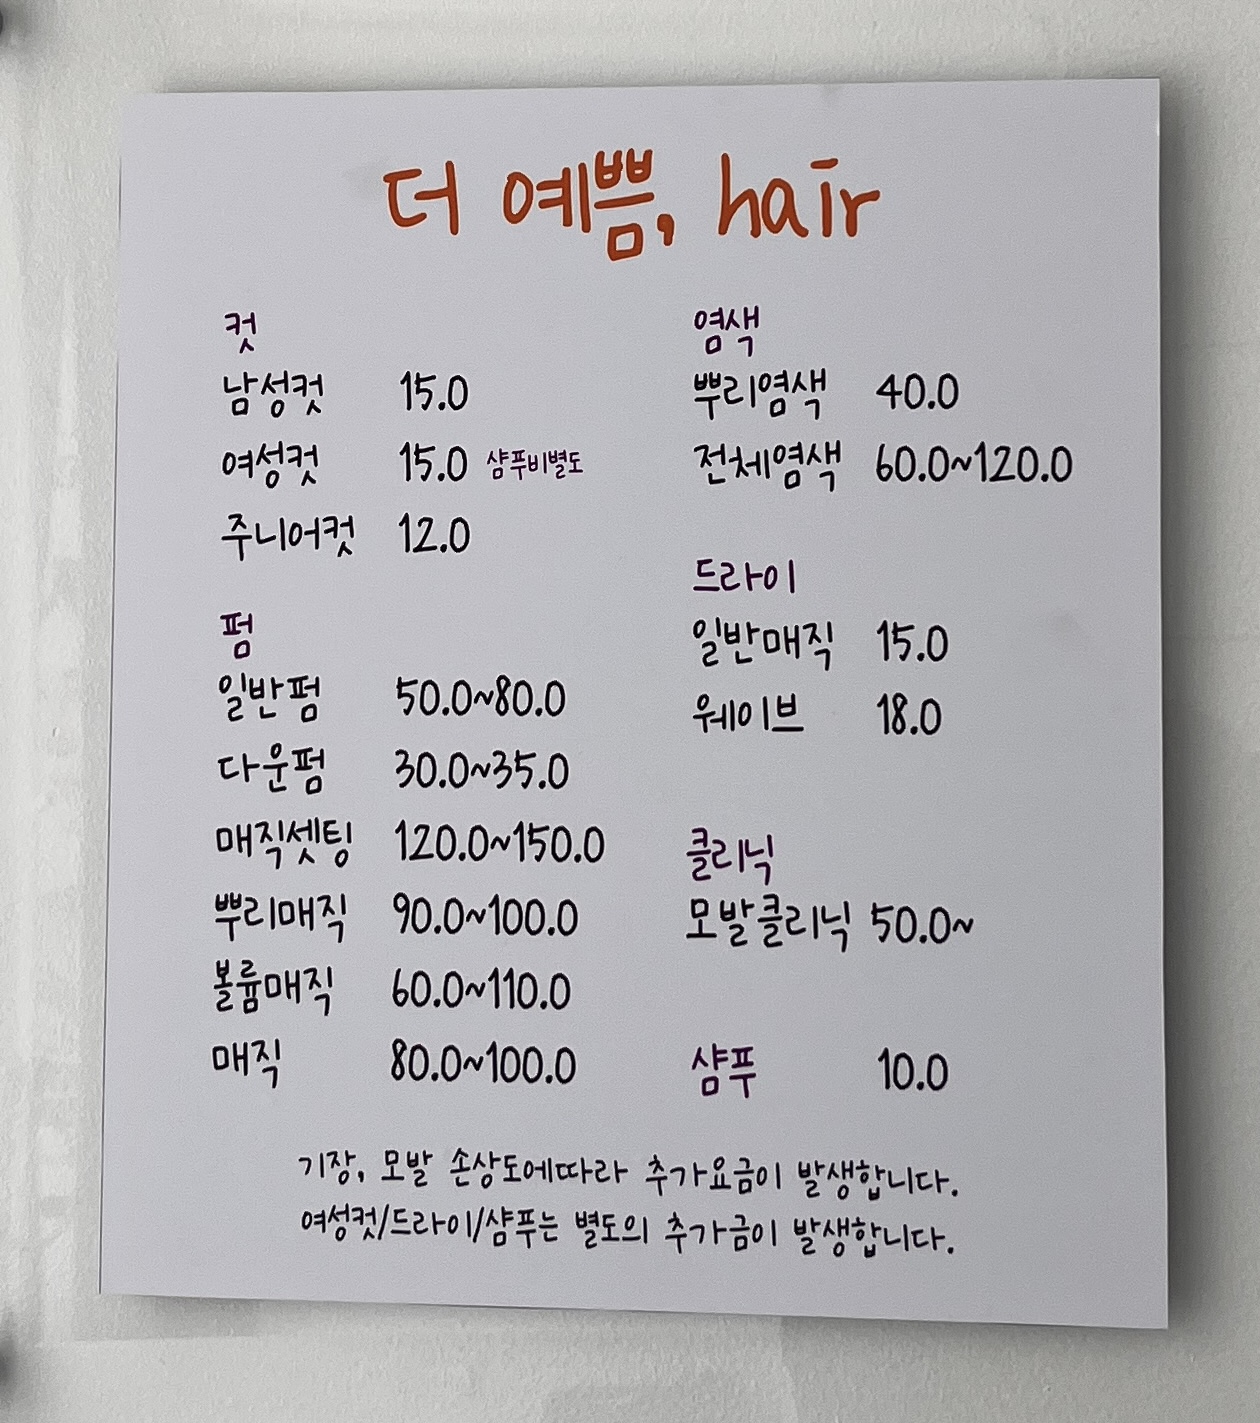 더 예쁨, hair
컷
남성컷 15.0
여성컷 15.0 샴푸비별도
주니어컷 12.0
펌
일반펌 50.0~80.0
다운펌 30.0~35.0
매직셋팅 120.0~150.0
뿌리매직 90.0~100.0
볼륨매직 60.0~110.0
매직 80.0~100.0
염색
뿌리염색 40.0
전체염색 60.0~120.0
드라이
일반매직 15.0
웨이브 18.0
클리닉
모발클리닉 50.0~
샴푸 10.0
기장, 모발 손상도에따라 추가요금이 발생합니다.
여성컷/드라이/샴푸는 별도의 추가금이 발생합니다.